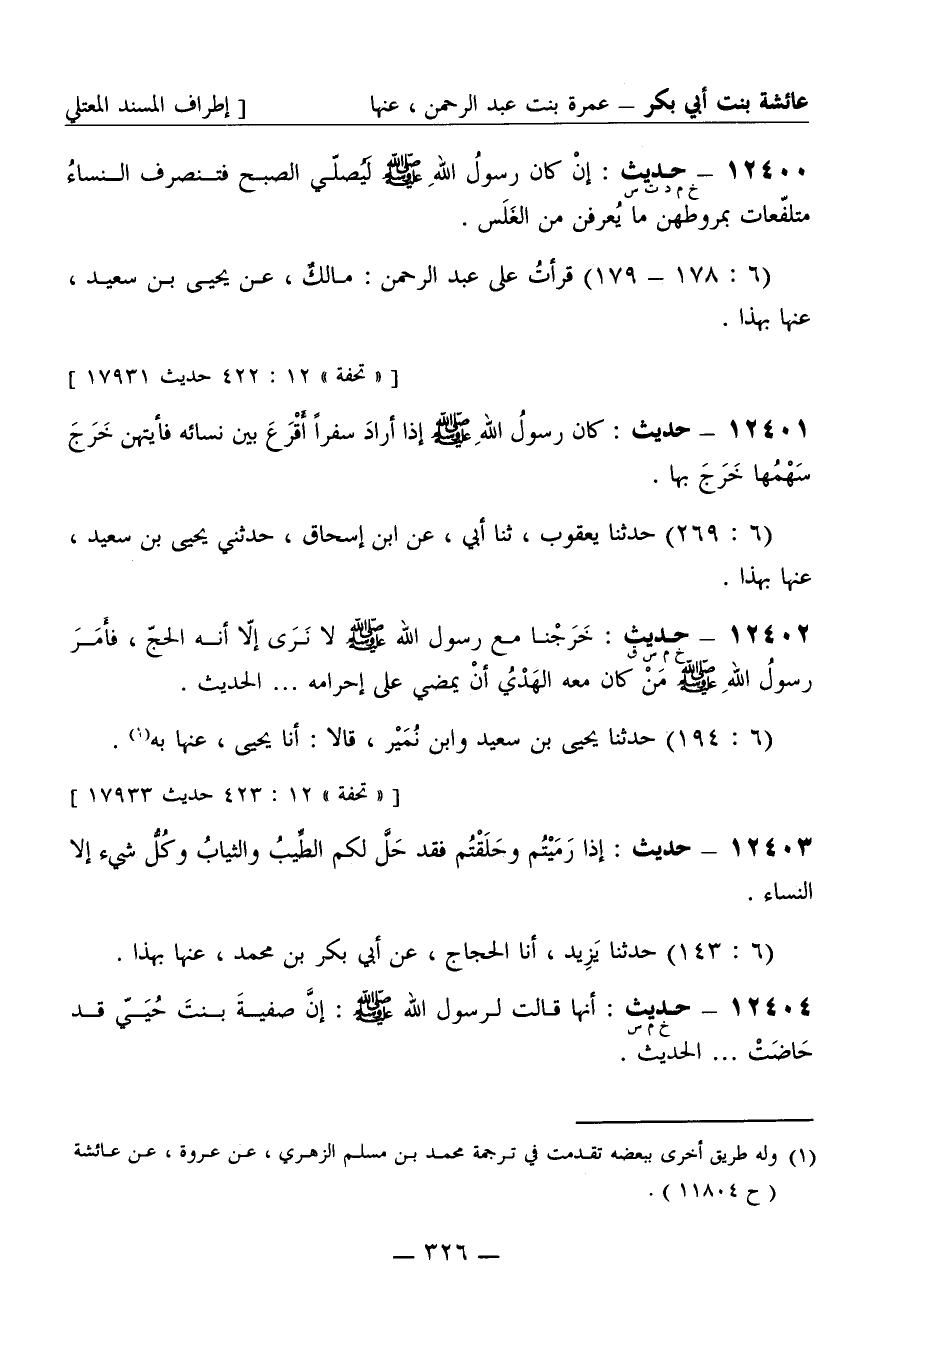 عائشة بنت أبي بكر – عمرة بنت عبد الرحمن ، عنها [ إطراف المسند المعتلي
١٢٤٠٠ – حديث : إنْ كان رسولُ اللهِ ﷺ لَيُصلّي الصبح فتـنصرف النساءُ
خ م د ت س
متلفّعات بمروطهن ما يُعرفن من الغَلَس .
(٦ : ١٧٨ – ١٧٩) قرأتُ على عبد الرحمن : مالكٌ ، عن يحيى بن سعيد ،
عنها بهذا .
[ « تحفة » ١٢ : ٤٢٢ حديث ١٧٩٣١ ]
١٢٤٠١ – حديث : كان رسولُ اللهِ ﷺ إذا أرادَ سفراً أَقْرَعَ بين نسائه فأيتهن خَرَجَ
سَهْمُها خَرَجَ بها .
(٦ : ٢٦٩) حدثنا يعقوب ، ثنا أبي ، عن ابن إسحاق ، حدثني يحيى بن سعيد ،
عنها بهذا .
١٢٤٠٢ – حديث : خَرَجْنا مع رسول الله ﷺ لا نَرَى إلّا أنه الحجّ ، فأَمَرَ
خ م س ق
رسولُ اللهِ ﷺ مَنْ كان معه الهَدْيُ أنْ يمضي على إحرامه ... الحديث .
(٦ : ١٩٤) حدثنا يحيى بن سعيد وابن نُمَيْر ، قالا : أنا يحيى ، عنها به(١) .
[ « تحفة » ١٢ : ٤٢٣ حديث ١٧٩٣٣ ]
١٢٤٠٣ – حديث : إذا رَمَيْتُم وحَلَقْتُم فقد حَلَّ لكم الطِّيبُ والثيابُ وكُلُّ شيء إلا
النساء .
(٦ : ١٤٣) حدثنا يَزِيد ، أنا الحجاج ، عن أبي بكر بن محمد ، عنها بهذا .
١٢٤٠٤ – حديث : أنها قالت لرسول الله ﷺ : إنَّ صفيةَ بنتَ حُيَيّ قد
خ م س
حَاضَتْ ... الحديث .
(١) وله طريق أخرى ببعضه تقدمت في ترجمة محمد بن مسلم الزهري ، عن عروة ، عن عائشة
( ح ١١٨٠٤ ) .
– ٣٢٦ –